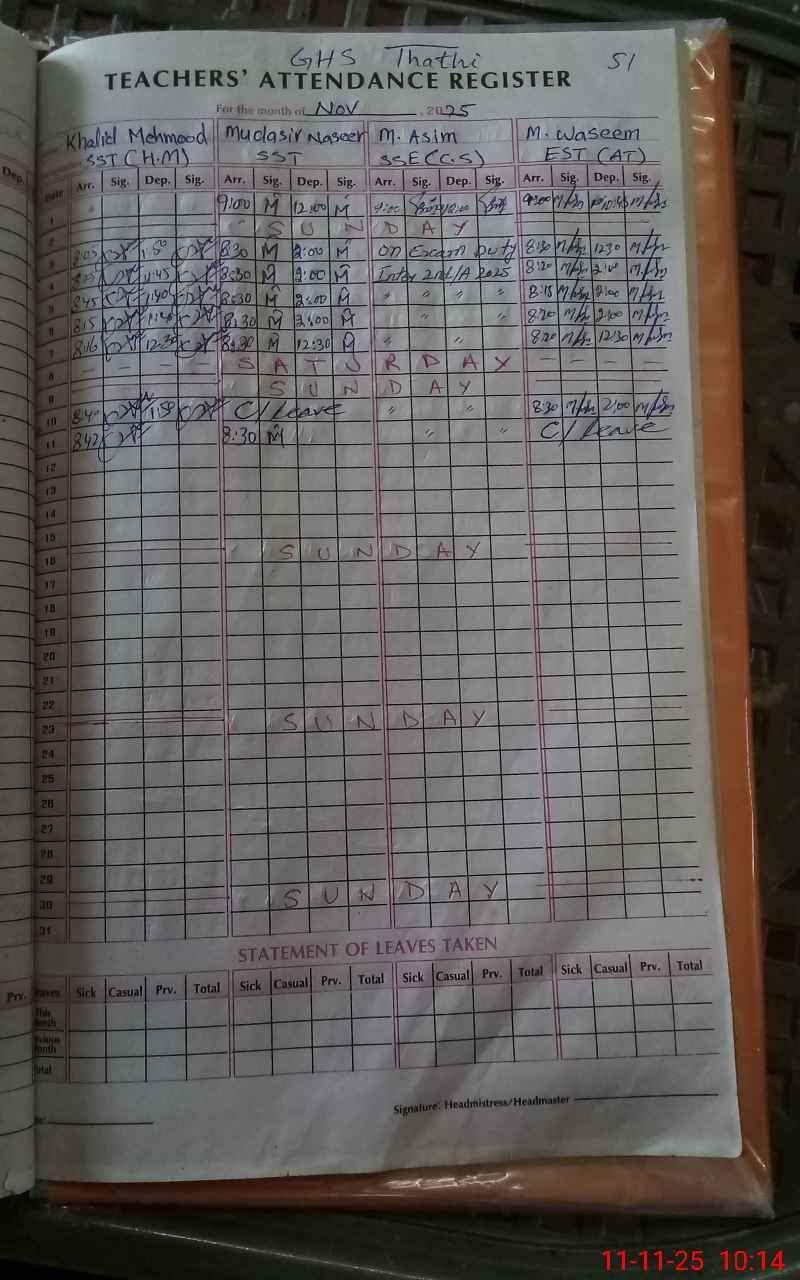 GHS Thathi 51
TEACHERS' ATTENDANCE REGISTER
For the month of NOV, 2025
Khalid Mehmood Mudasir Naseer M. Asim M. Waseem
SST (H.M) SST SSE (C.S) EST (AT)
Dep. Date Arr. Sig. Dep. Sig. Arr. Sig. Dep. Sig. Arr. Sig. Dep. Sig. Arr. Sig. Dep. Sig.
1 9:00 M 12:00 M 9:00 12:00 9:00
2 S U N D A Y
3 8:05 1:50 8:30 M 2:00 M on Duty 8:30 12:30
4 1:45 8:30 M 2:00 M Inter 2nd/A 2025 8:20 2:00
5 8:45 1:40 8:30 M 2:00 M " " " " 8:15 2:00
6 8:15 1:40 8:30 M 2:00 M " " " 8:20 2:00
7 8:16 12:30 8:30 M 12:30 M " " " 8:20 12:30
8 – – – – S A T U R D A Y – – – –
9 S U N D A Y
10 8:40 1:50 C/ Leave " " 8:30 2:00
11 8:42 8:30 M " " C/ Leave
12
13
14
15
16 S U N D A Y
17
18
19
20
21
22
23 S U N D A Y
24
25
26
27
28
29
30 S U N D A Y
31
STATEMENT OF LEAVES TAKEN
Prv. Leaves Sick Casual Prv. Total Sick Casual Prv. Total Sick Casual Prv. Total Sick Casual Prv. Total
This Month
Previous Month
Total
Signature: Headmistress/Headmaster
11-11-25 10:14